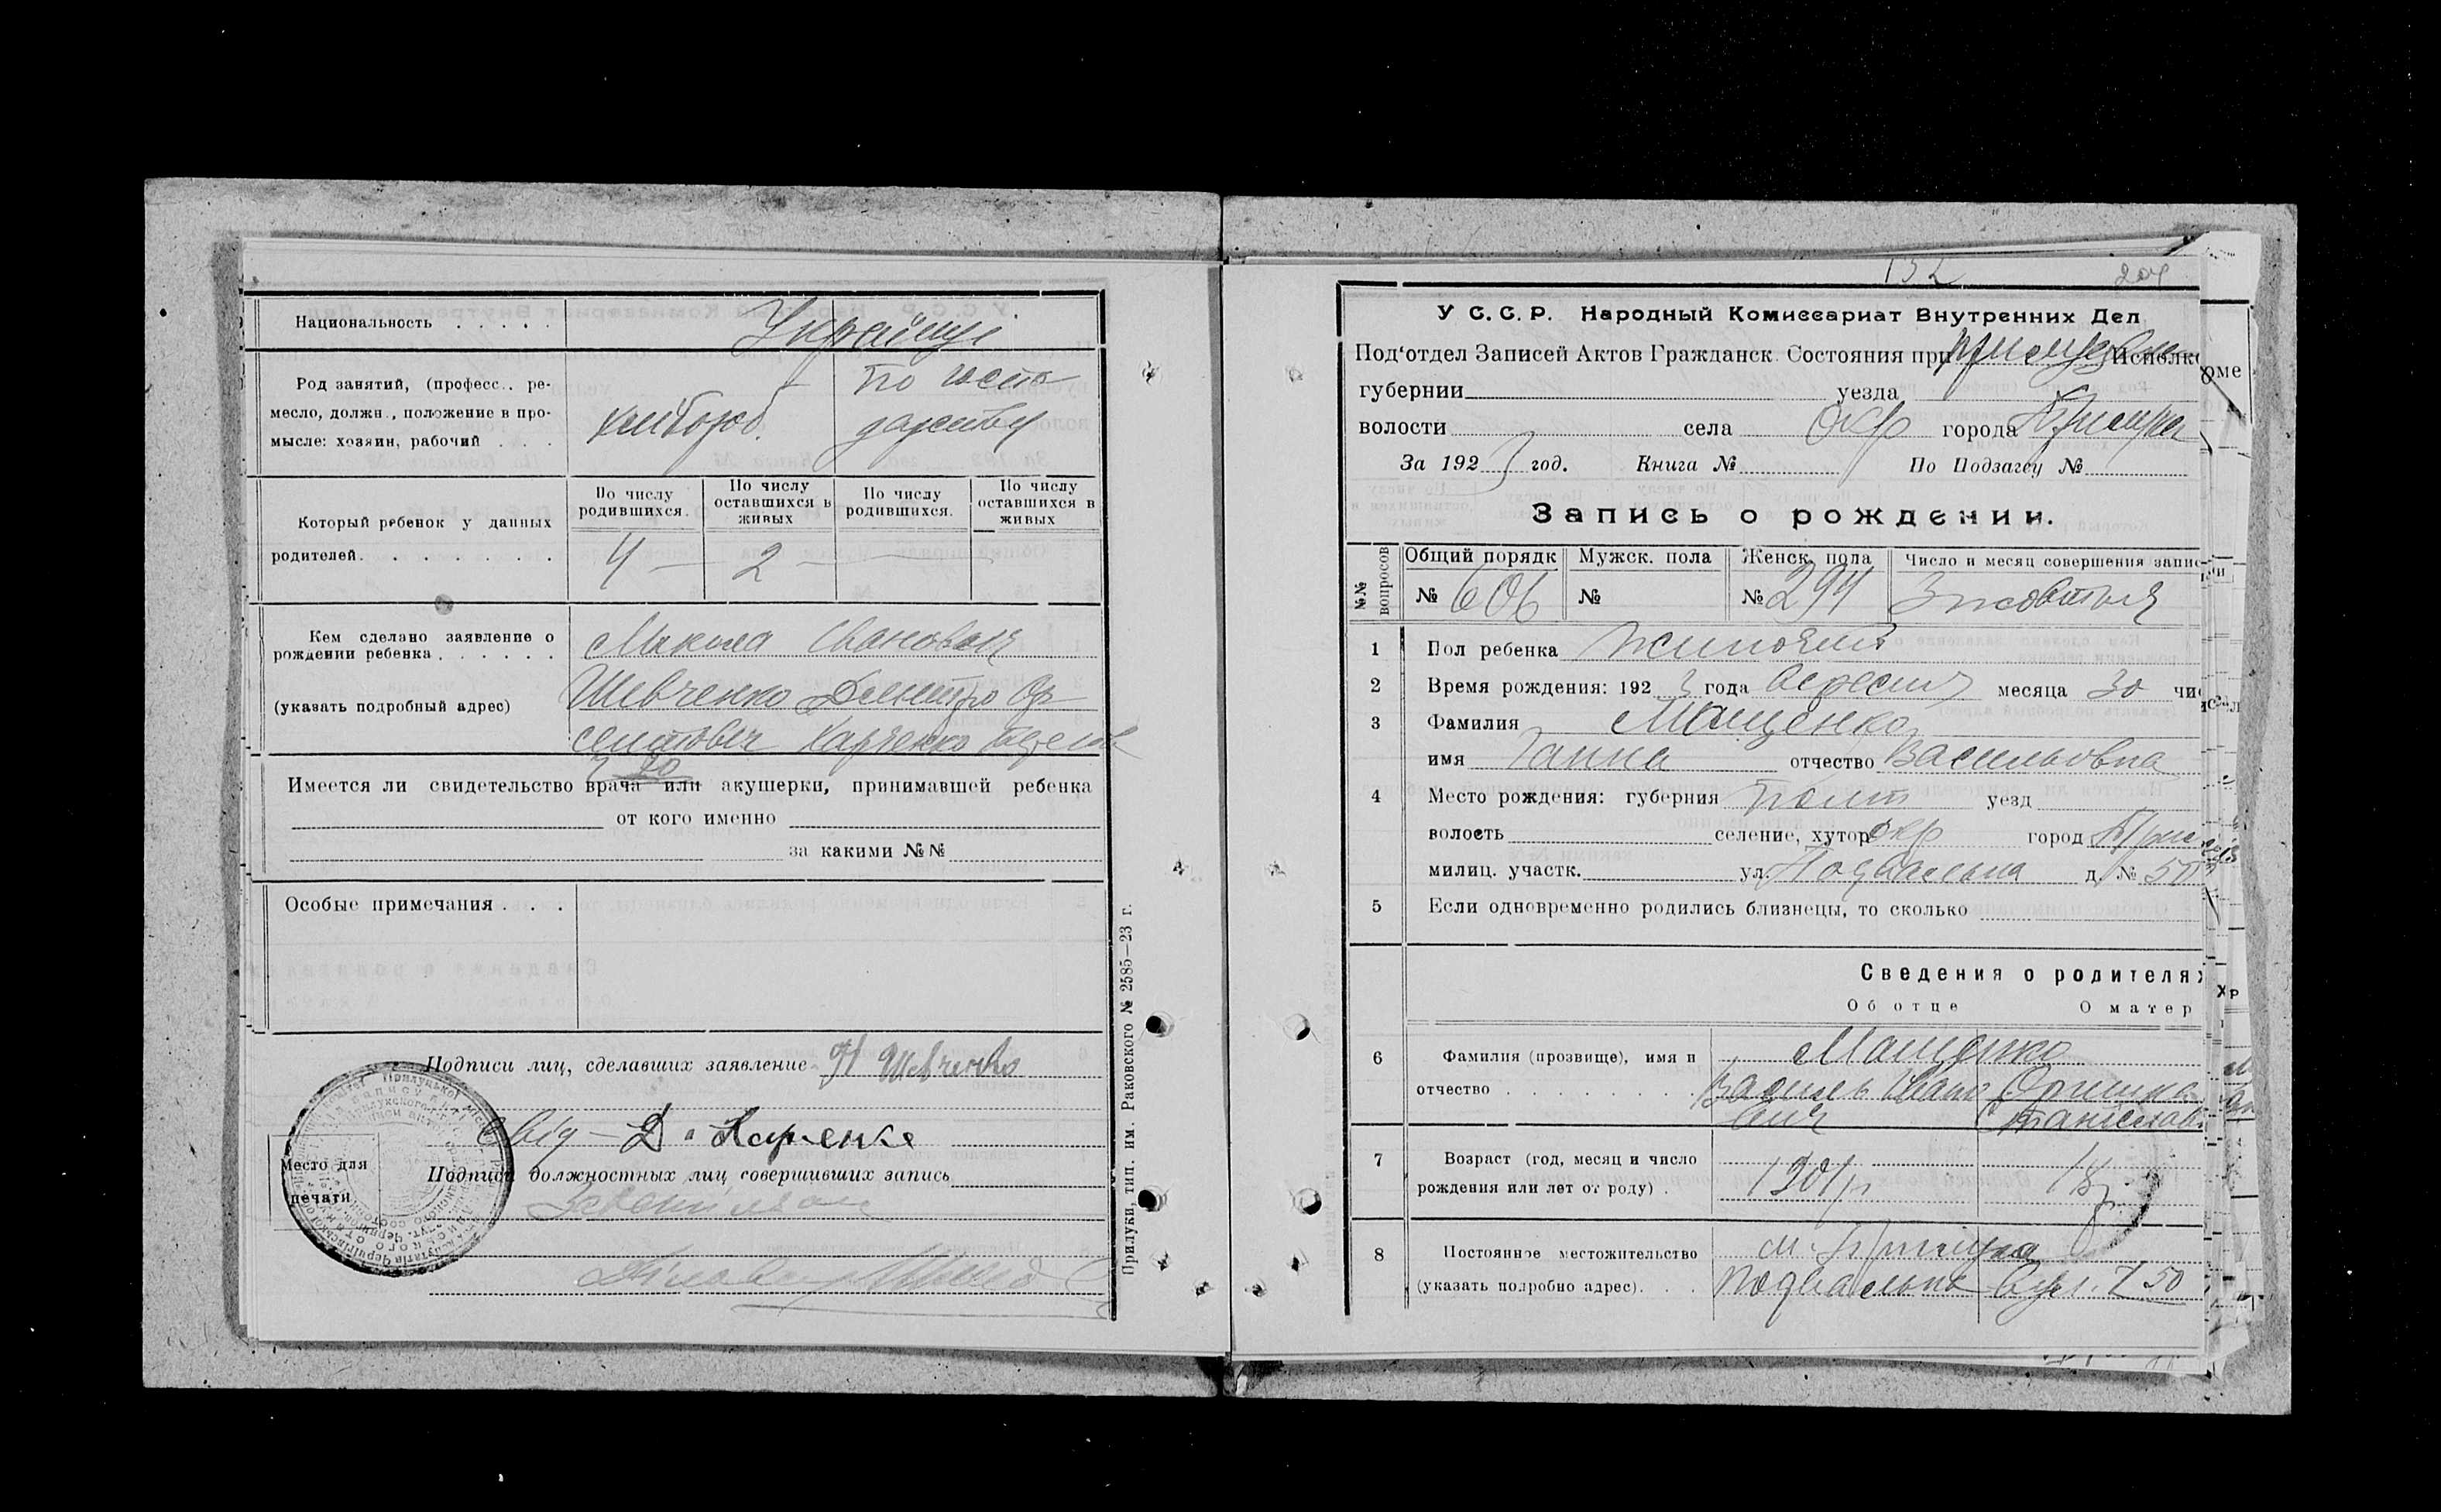 Национальность . . . . .
Українці
Род занятий, (професс., ре-
месло, должн., положение в про-
мысле: хозяин, рабочий . . .
хлібороб.
по госпо
дарству
Который ребенок у данных
родителей. . . . . . . .
По числу родившихся.
По числу оставшихся в живых
По числу родившихся.
По числу оставшихся в живых
4 — 2 —
Кем сделано заявление о
рождении ребенка . . . . . .
(указать подробный адрес)
Микола Іванович
Шевченко Дмитро Ор
сентович Харченко
Имеется ли свидетельство врача или акушерки, принимавшей ребенка
от кого именно
за какими №№
Особые примечания . . .
Подписи лиц, сделавших заявление Н Шевченко
Свід — Д. Харченко
Место для
печати
Подписи должностных лиц совершивших запись
Прилуки, тип. им. Раковского № 2585—23 г.
132
204
У С. С. Р. Народный Комиссариат Внутренних Дел
Под'отдел Записей Актов Гражданск. Состояния при Исполко
губернии уезда
волости села Окр города Прилука
За 1923 год. Книга № По Подзагсу №
Запись о рождении.
№№ вопросов
Общий порядк
Мужск. пола
Женск. пола
Число и месяц совершения запис
№ 606
№
№ 294
3 жовтня
1 Пол ребенка жіночий
2 Время рождения: 1923 года Вересня месяца 30 чис
3 Фамилия Мащенко
имя Ганна отчество Васильовна
4 Место рождения: губерния Полт уезд
волость селение, хутор окр город Прилуки
милиц. участк. ул. Подвальна д. № 50
5 Если одновременно родились близнецы, то сколько
Сведения о родителях
Об отце О матер
6 Фамилия (прозвище), имя и
отчество . . . . . . . .
Мащенко
Василь Івано
вич
Орішка
Станіслав
7 Возраст (год, месяц и число
рождения или лет от роду) .
1901р
18р
8 Постоянное местожительство
(указать подробно адрес). . . .
м. Прилука
Подвальна вул. 50